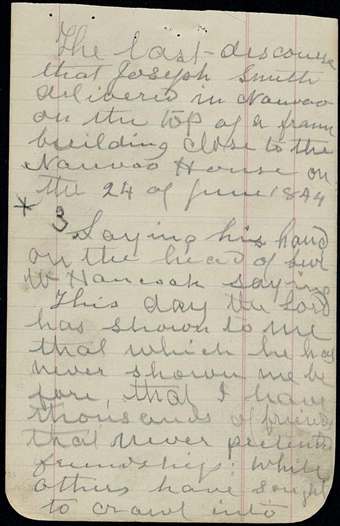 The last discourse
that Joseph Smith
delivered in Nauvoo
on the top of a fram
building close to the
Nauvoo House on
the 24 of June 1844
* 3
Laying his hand
on the head of
W Hancock saying
This day the Lord
has shown to me
that which he has
never shown me be
fore, that I have
thousands of friends
that never
friendship: while
others have sought
to crawl into